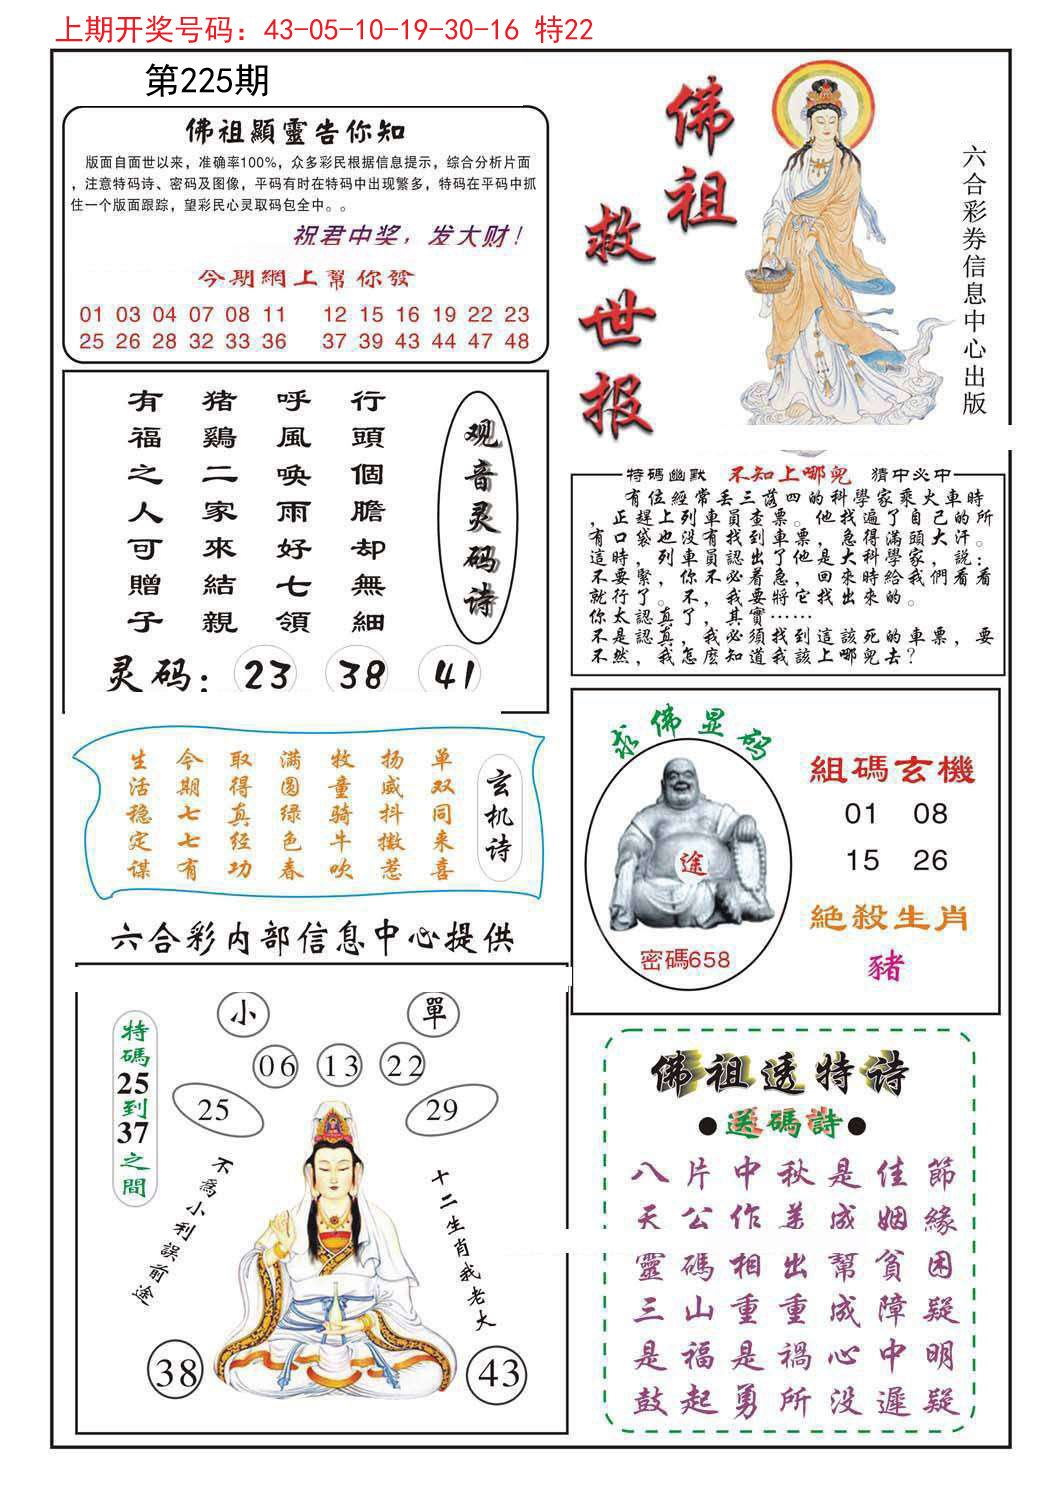 上期开奖号码：43-05-10-19-30-16 特22
第225期
佛祖顯靈告你知
版面自面世以来，准确率100%，众多彩民根据信息提示，综合分析片面
，注意特码诗、密码及图像，平码有时在特码中出现繁多，特码在平码中抓
住一个版面跟踪，望彩民心灵取码包全中。。
祝君中奖，发大财！
今期網上幫你發
01 03 04 07 08 11 12 15 16 19 22 23
25 26 28 32 33 36 37 39 43 44 47 48
佛祖
救世报
六合彩券信息中心出版
观音灵码诗
行頭個膽却無細
呼風喚雨好七領
猪鷄二家來結親
有福之人可贈子
灵码：23 38 41
特码幽默 不知上哪兒 猜中必中
有位經常丢三落四的科學家乘火車時
，正趕上列車員查票。他找遍了自己的所
有口袋也没有找到車票，急得滿頭大汗。
這時，列車員認出了他是大科學家，説：
不要緊，你不必着急，回來時給我們看看
就行了。不，我要將它找出來的。
你太認真了，其實……
不是認真，我必須找到這該死的車票，要
不然，我怎麽知道我該上哪兒去？
玄机诗
单双同来喜
扬威抖擞惹
牧童骑牛吹
满圆绿色春
取得真经功
今期七七有
生活稳定谋
求佛显码
途
密碼658
組碼玄機
01 08
15 26
絶殺生肖
豬
六合彩内部信息中心提供
小 單
06 13 22
25 29
特碼25到37之間
不為小利誤前途
十二生肖我老大
38 43
佛祖透特诗
●送碼詩●
八片中秋是佳節
天公作美成姻緣
靈碼相出幫貧困
三山重重成障疑
是福是禍心中明
鼓起勇所没遲疑